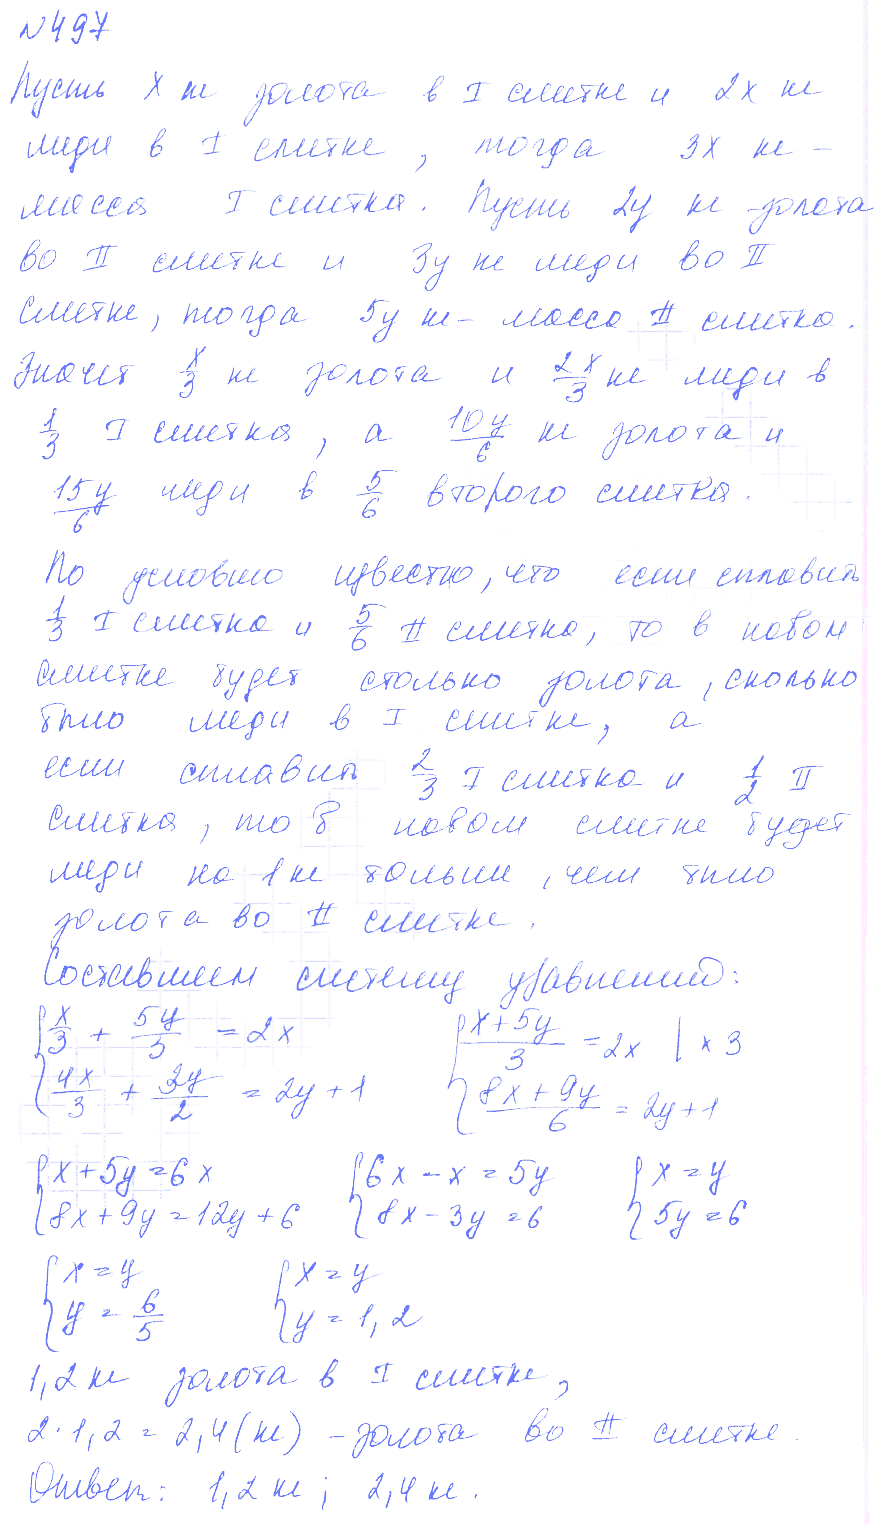 №497
Пусть x кг золота в I слитке и 2x кг
меди в I слитке, тогда 3x кг –
масса I слитка. Пусть 2y кг золота
во II слитке и 3y кг меди во II
слитке, тогда 5y кг – масса II слитка.
Значит x/3 кг золота и 2x/3 кг меди в
1/3 I слитка, а 10y/6 кг золота и
15y/6 меди в 5/6 второго слитка.
По условию известно, что если сплавить
1/3 I слитка и 5/6 II слитка, то в новом
слитке будет столько золота, сколько
было меди в I слитке, а
если сплавить 2/3 I слитка и 1/2 II
слитка, то в новом слитке будет
меди на 1 кг больше, чем было
золота во II слитке.
Составляем систему уравнений:
{x/3 + 5y/3 = 2x {(x+5y)/3 = 2x | × 3
{4x/3 + 3y/2 = 2y + 1 {(8x + 9y)/6 = 2y + 1
{x + 5y = 6x {6x – x = 5y {x = y
{8x + 9y = 12y + 6 {8x – 3y = 6 {5y = 6
{x = y {x = y
{y = 6/5 {y = 1,2
1,2 кг золота в I слитке,
2 · 1,2 = 2,4 (кг) – золота во II слитке.
Ответ: 1,2 кг; 2,4 кг.